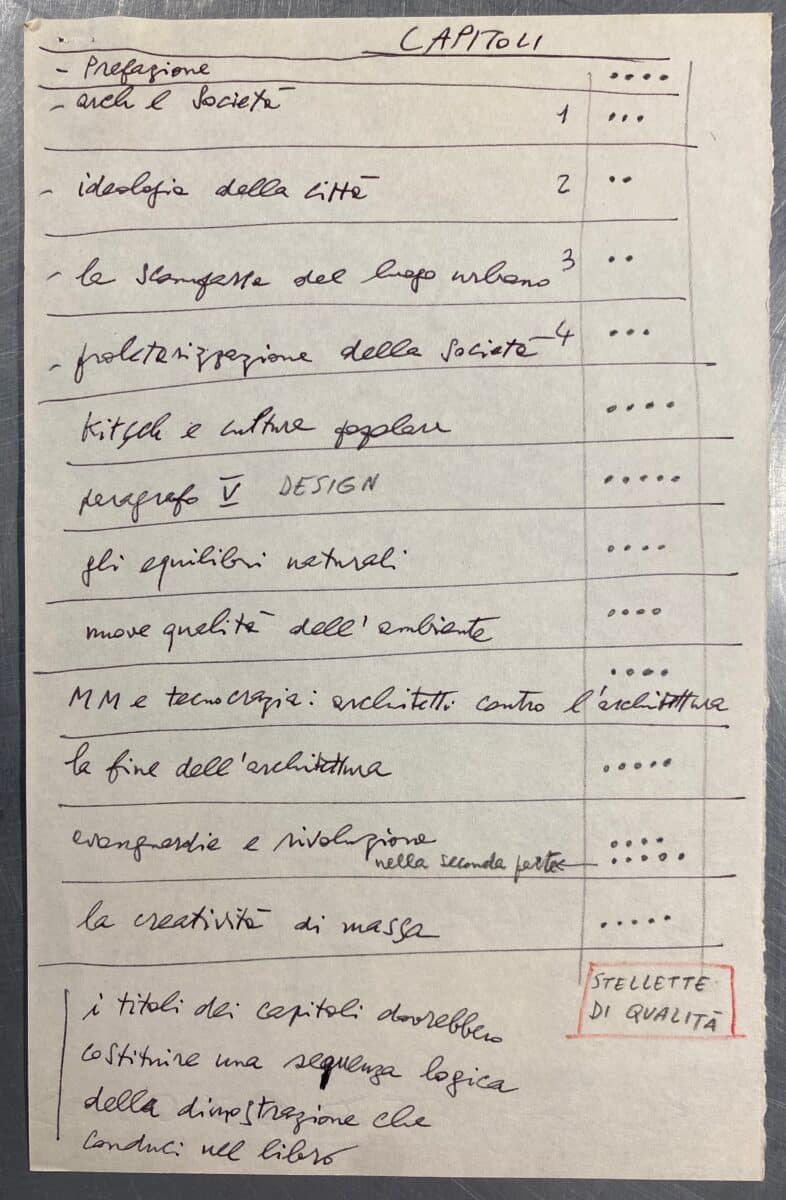 CAPITOLI
- Prefazione ....
- arch e Società 1 ...
- ideologia della città 2 ..
- la scomparsa del luogo urbano 3 ..
- proletarizzazione della Società 4 ...
Kitsch e cultura popolare ....
paragrafo V DESIGN .....
gli equilibri naturali ....
nuove qualità dell'ambiente ....
....
MM e tecnocrazia: architetti contro l'architettura
la fine dell'architettura .....
avanguardie e rivoluzione ....
nella seconda parte ← .....
la creatività di massa .....
STELLETTE
DI QUALITÀ
i titoli dei capitoli dovrebbero
costituire una sequenza logica
della dimostrazione che
conduci nel libro